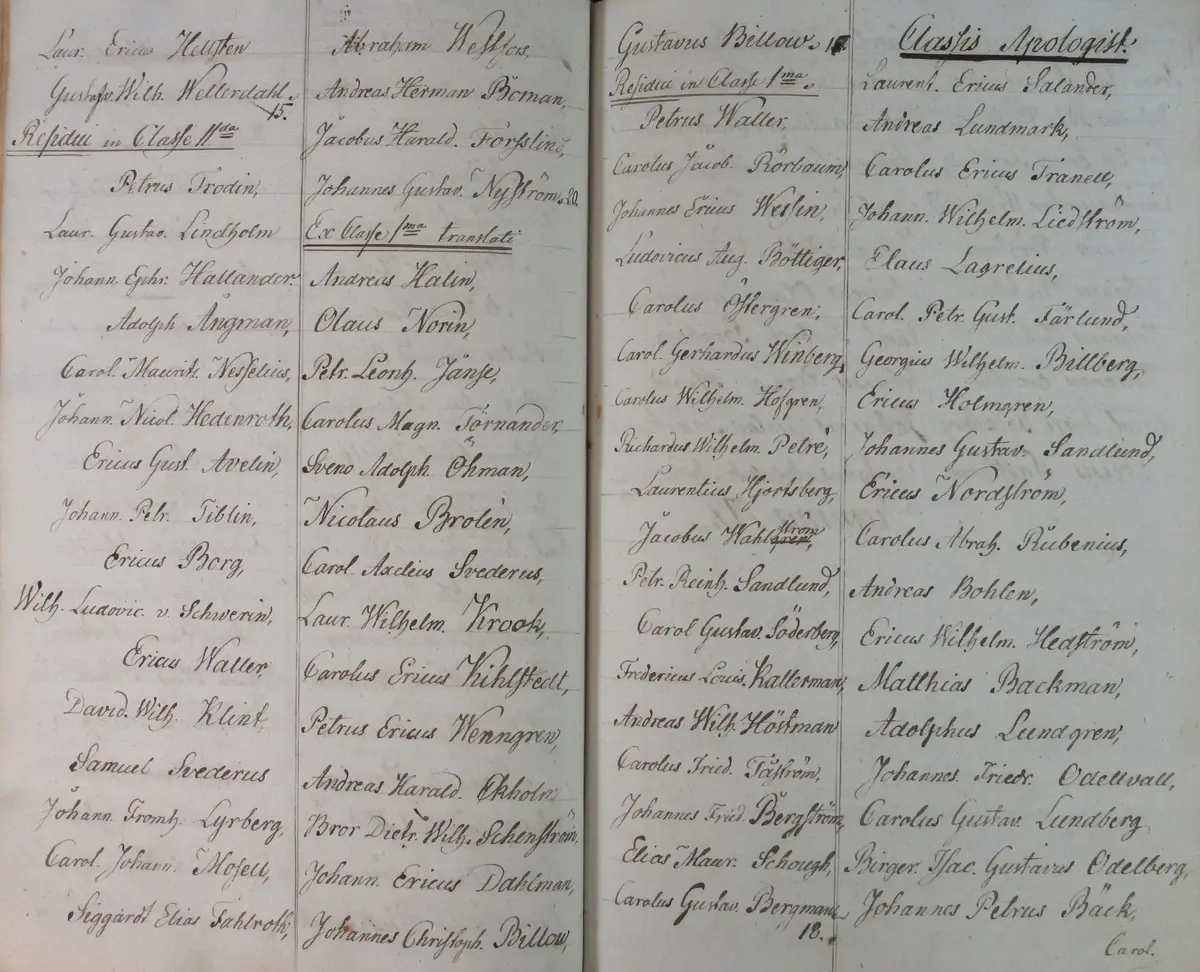 Laur. Ericus Hellsten
Gustav. Wilh. Wellerdahl.
15.
Residui in Classe IIda
Petrus Frodin,
Laur. Gustav. Lindholm
Johann. Ephr. Hallander.
Adolph Ångman,
Carol. Maurits. Nesselius,
Johann. Nicol. Hedenroth,
Ericus Gust. Avelin,
Johann. Petr. Tiblin,
Ericus Borg,
Wilh. Ludovic. v. Schwerin,
Ericus Waller,
David. Wilh. Klint,
Samuel Svederus
Johann. Fromh. Lyrberg,
Carol. Johann. Mosell,
Siggardt Elias Fahlroth,
Abraham Westfors,
Andreas Herman Boman,
Jacobus Harald. Forsslind,
Johannes Gustav. Nyström. 20.
Ex Classe Ima translati
Andreas Halin,
Olaus Norin,
Petr. Leonh. Jänse,
Carolus Magn. Törnander,
Sveno Adolph. Öhman,
Nicolaus Brolén,
Carol. Axelius Svederus,
Laur. Wilhelm. Krook,
Carolus Ericus Kihlstedt,
Petrus Ericus Wenngren,
Andreas Harald. Ekholm
Bror Dietr. Wilh. Schenström,
Johann. Ericus Dahlman,
Johannes Christoph. Billow,
Gustavus Billow.
Residui in Classe Ima.
Petrus Waller,
Carolus Jacob. Rörbaum,
Johannes Ericus Wessin,
Ludovicus Aug. Böttiger,
Carolus Östergren,
Carol. Gerhardus Winberg,
Carolus Wilhelm. Hofgren,
Richardus Wilhelm. Petré,
Laurentius Hjortsberg,
Jacobus Wahlström,
Petr. Reinh. Sandlund,
Carol Gustav. Söderberg,
Fredericus Louis. Kallerman,
Andreas Wilh. Höstman
Carolus Fried. Täström,
Johannes Fried. Bergström,
Elias Maur. Schough,
Carolus Gustav. Bergman,
18.
Classis Apologist.
Laurent. Ericus Salander,
Andreas Lundmark,
Carolus Ericus Tranell,
Johann. Wilhelm. Liedström,
Elaus Lagrelius,
Carol. Petr. Gust. Färlund,
Georgius Wilhelm. Billberg,
Ericus Holmgren,
Johannes Gustav. Sandlund,
Ericus Nordström,
Carolus Abrah. Rubenius,
Andreas Bohlen,
Ericus Wilhelm. Hedström,
Matthias Backman,
Adolphus Lundgren,
Johannes. Friedr. Odellvall,
Carolus Gustav. Lundberg
Birger Isac. Gustavus Odelberg,
Johannes Petrus Bäck,
Carol.